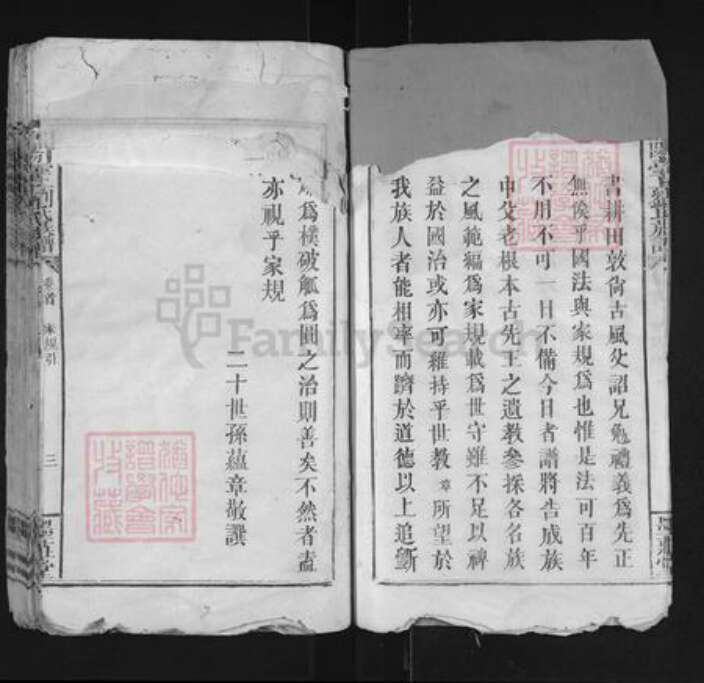 書耕田敦尙古風父詔兄勉禮義爲先正
無俟乎國法與家規爲也惟是法可百年
不用不可一日不備今日者譜將告成族
中父老根本古先王之遺敎參採各名族
之風範編爲家規載爲世守雖不足以裨
益於國治或亦可維持乎世敎章所望於
我族人者能相率而躋於道德以上追斵
爲樸破觚爲圓之治則善矣不然者盍
亦視乎家規
二十世孫蘊章敬譔
卷首
家規引
三
FamilySearch